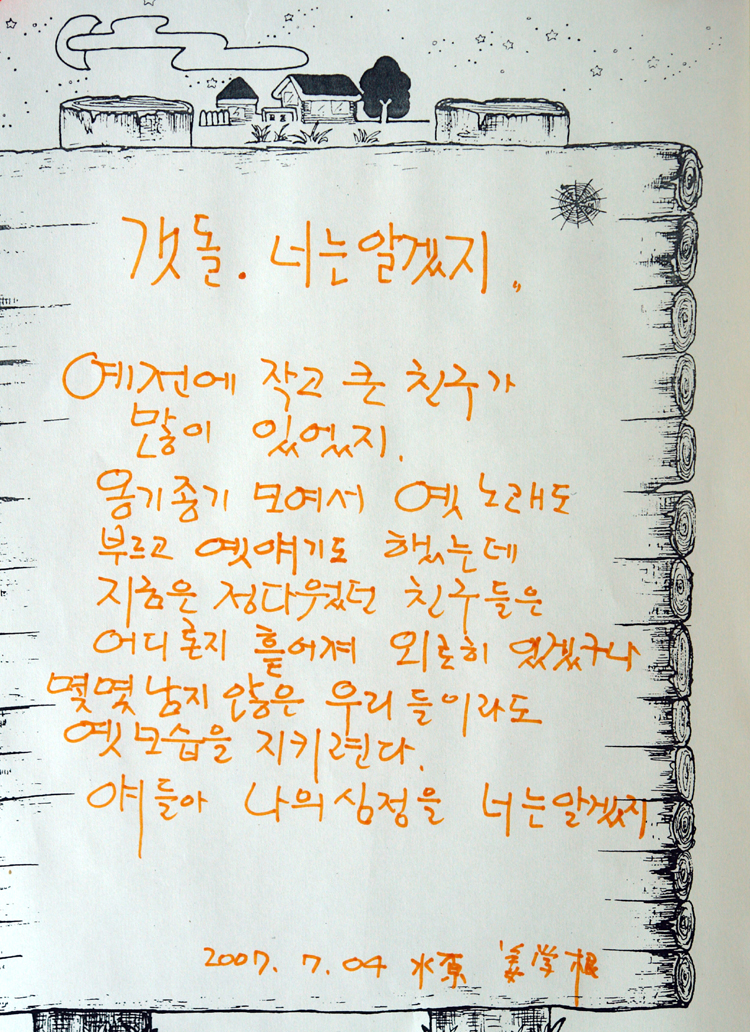 갯돌. 너는알겠지〃
예전에 작고 큰 친구가
많이 있었지.
옹기종기 모여서 옛 노래도
부르고 옛얘기도 했는데
지금은 정다웠던 친구들은
어디론지 흩어져 외로히 있겠구나
몇몇 남지 않은 우리들이라도
옛모습을 지키련다.
얘들아 나의심정을 너는알겠지
2007. 7. 04 水原 姜学根